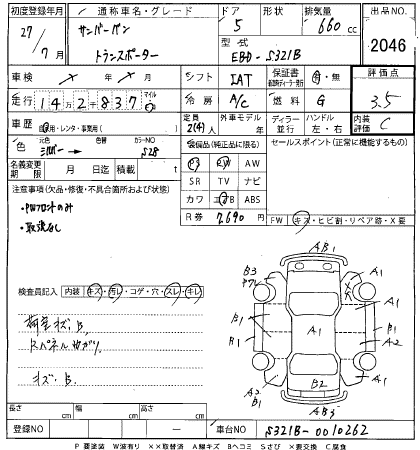 初度登録年月 通称車名・グレード ドア 形状 排気量 出品NO.
27/7月 サンバーバン トランスポーター 5 660cc 2046
型式 EBD-S321B
車検 × 年 × 月 シフト IAT 保証書 有・無 評価点
走行 142837 マイル 冷房 A/C 燃料 G 3.5
車歴 自家用・レンタ・事業用( ) 定員 2(4)人 外車モデル 年 ディーラー 並行 ハンドル 左・右 内装評価 C
色 元色 シルバー 色替 カラーNO S28 装備品(純正品に限る) セールスポイント(正常に機能するもの)
名義変更期限 月 日迄 積載 t PS PW AW
注意事項(欠品・修復・不具合箇所および状態) SR TV ナビ
・PWフロントのみ カワ エアB ABS
・取説なし R券 7,690円 FW キズ・ヒビ割・リペア跡・X要
検査員記入 内装 キズ・汚レ・コゲ・穴・スレ・キレ
荷室キズ、B、
キズ、B
AB1
B3 A1
B1 A1 B1
B1 A2
B2
A2 B1 A1
AB3
長さ cm 幅 cm 高さ cm
登録NO - 車台NO S321B-0010262
P 要塗装 W波有り ××取替済 A線キズ Bヘコミ Sさび ×要交換 C腐食